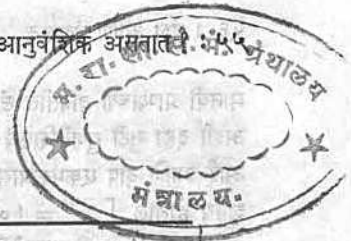 आनुवंशिक असतात ? : ५५
म. रा. सा. सं. मं. ग्रंथालय
मंत्रालय.